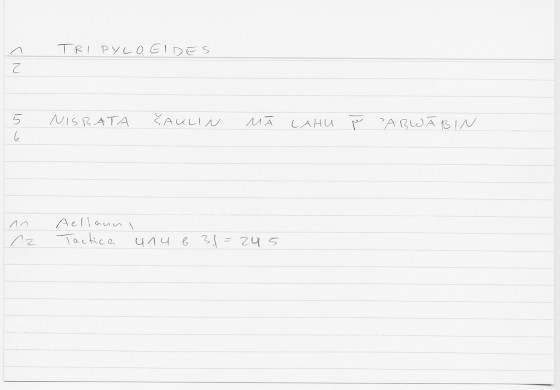 1 TRIPYLOEIDES
2
5 NISRATA ŠAULIN MĀ LAHU P̄ ʾARWĀBIN
6
11 Aelianus,
12 Tactica 414 B 31 = 245